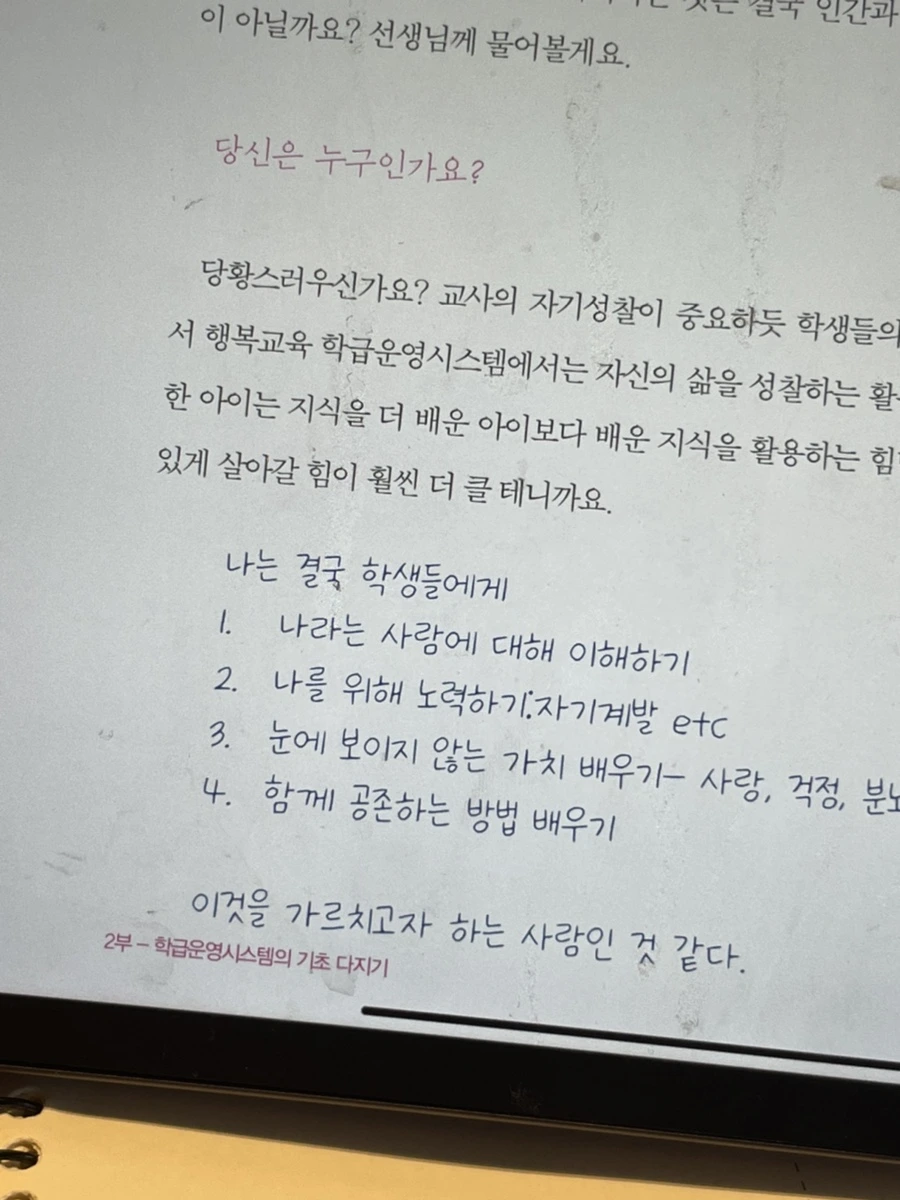 결국 인간과
이 아닐까요? 선생님께 물어볼게요.
당신은 누구인가요?
당황스러우신가요? 교사의 자기성찰이 중요하듯 학생들의
서 행복교육 학급운영시스템에서는 자신의 삶을 성찰하는
한 아이는 지식을 더 배운 아이보다 배운 지식을 활용하는 힘
있게 살아갈 힘이 훨씬 더 클 테니까요.
나는 결국 학생들에게
1. 나라는 사람에 대해 이해하기
2. 나를 위해 노력하기:자기계발 etc
3. 눈에 보이지 않는 가치 배우기- 사랑, 걱정, 분노
4. 함께 공존하는 방법 배우기
이것을 가르치고자 하는 사람인 것 같다.
2부 – 학급운영시스템의 기초 다지기